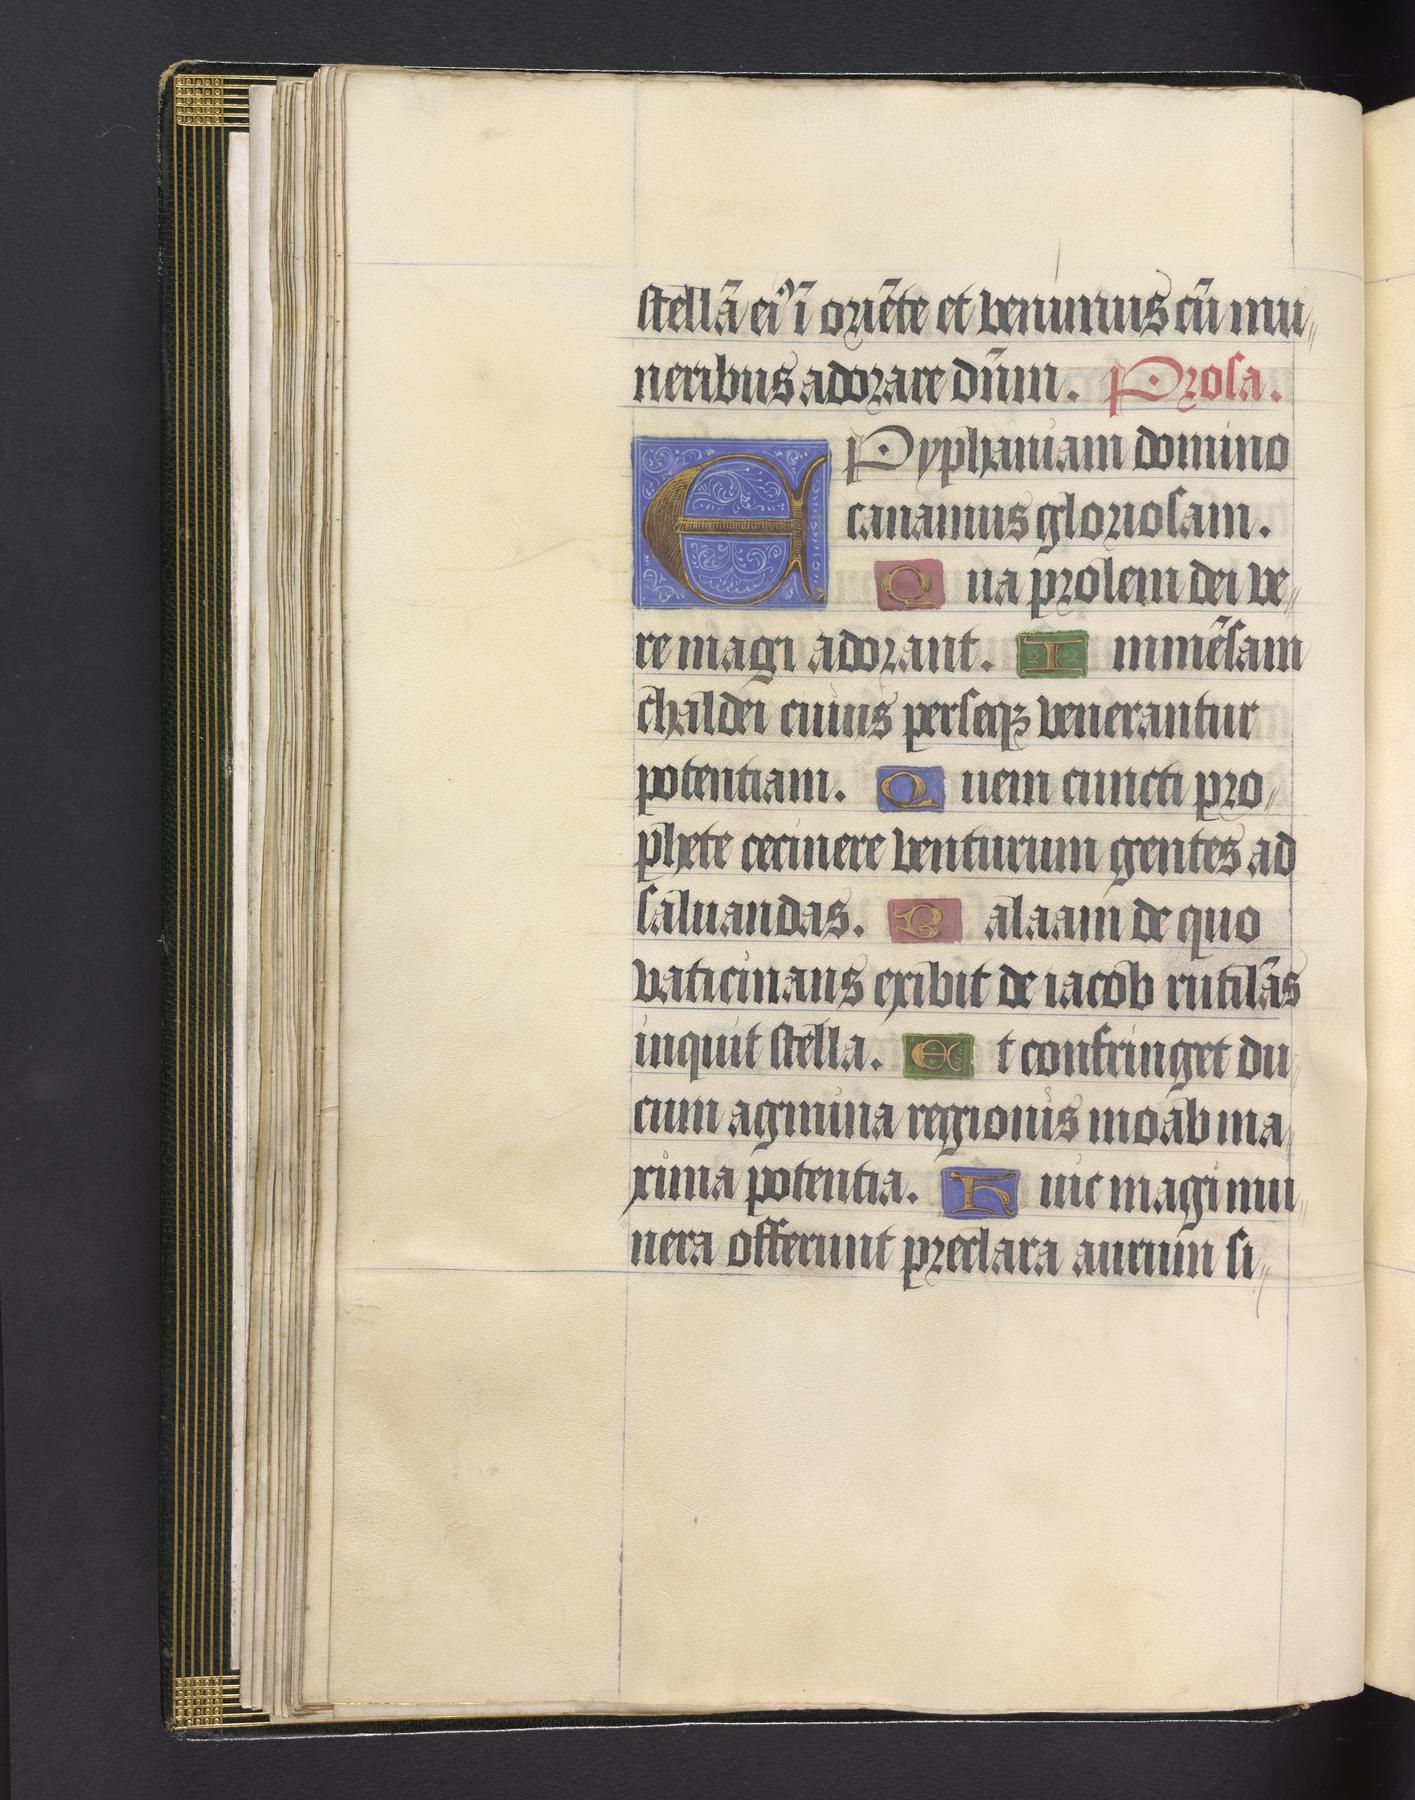 stellā ei⁹ ī oriēte et venimus cū mu
neribus adorare dn̄m. Prosa.
EPyphaniam domino
canamus gloriosam.
Qua prolem dei ve
re magi adorant. Immēsam
chaldei cuius perseqꝫ venerantur
potentiam. Quem cuncti pro
phete cecinere venturum gentes ad
saluandas. Balaam de quo
vaticinans exibit de iacob rutilās
inquit stella. Et confringet du
cum agmina regionis moab ma
xima potentia. Huic magi mu
nera offerunt preclara aurum si